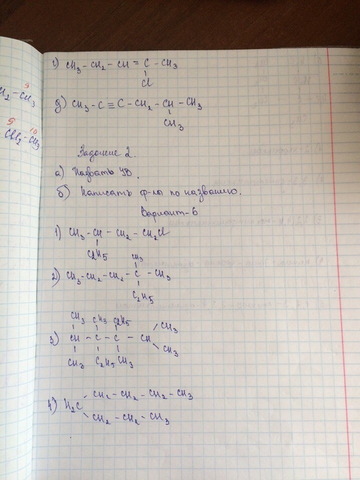 г) CH₃-CH₂-CH=C-CH₃
Cl
д) CH₃-C≡C-CH₂-CH-CH₃
CH₃
H₂-CH₃
9 10
CH₂-CH₃
Задание 2.
а) Назвать УВ.
б) Написать ф-лы по названию.
Вариант-6
1) CH₃-CH-CH₂-CH₂Cl
C₂H₅
CH₃
2) CH₃-CH₂-CH₂-C-CH₃
C₂H₅
CH₃ CH₃ C₂H₅ CH₃
3) CH - C - C - CH
CH₃ C₂H₅ CH₃ CH₃
CH₂-CH₂-CH₂-CH₃
4) H₂C
CH₂-CH₂-CH₃